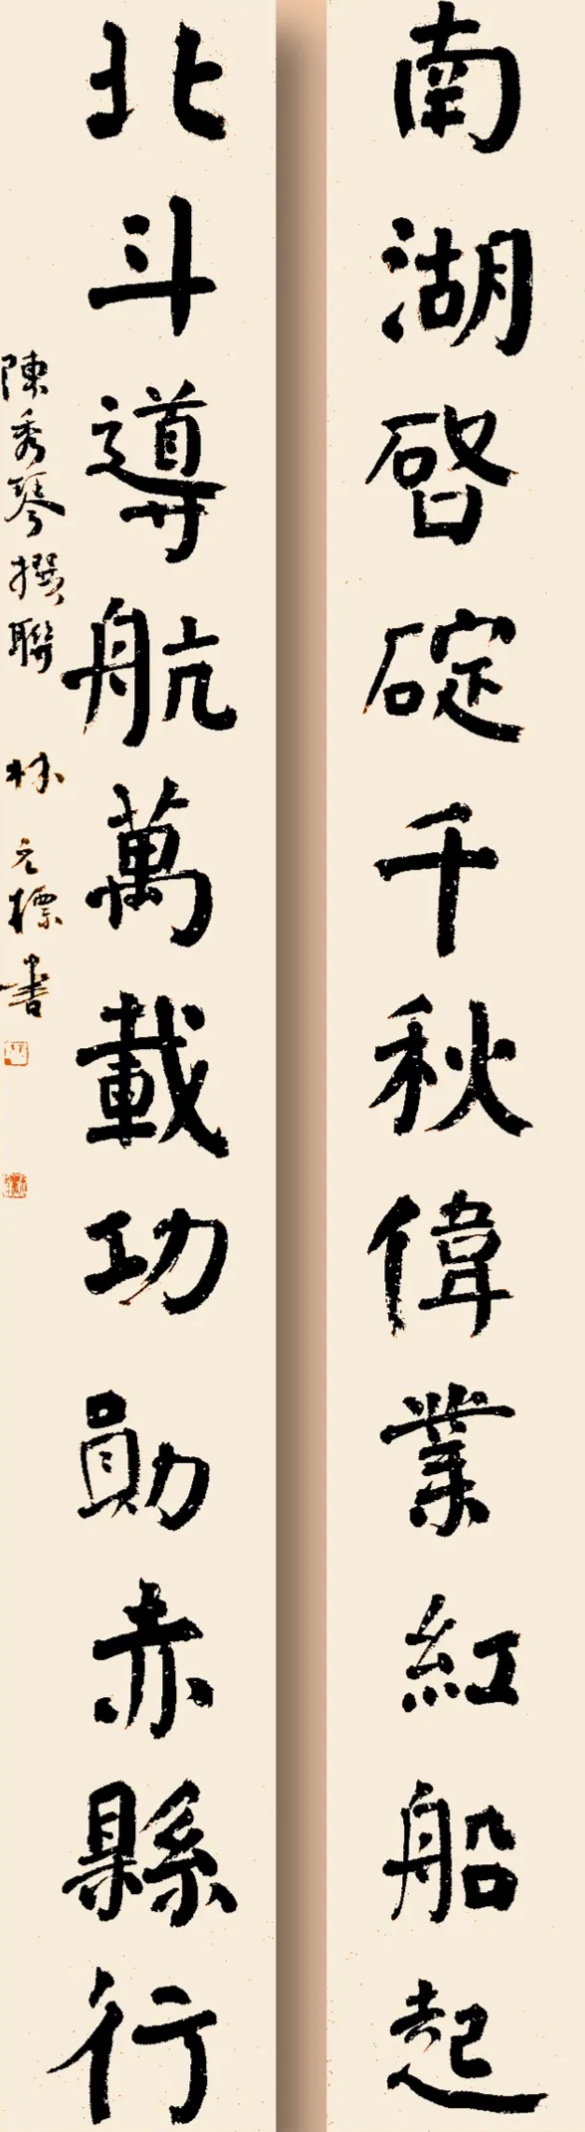 南湖啓碇千秋偉業紅船起
北斗導航萬載功勛赤縣行
陳秀琴撰聯 林之標書